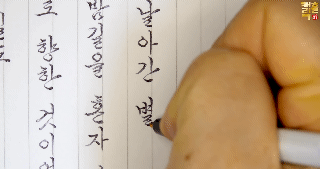 날아간 별
밤길을 혼자
로 향한 것이었